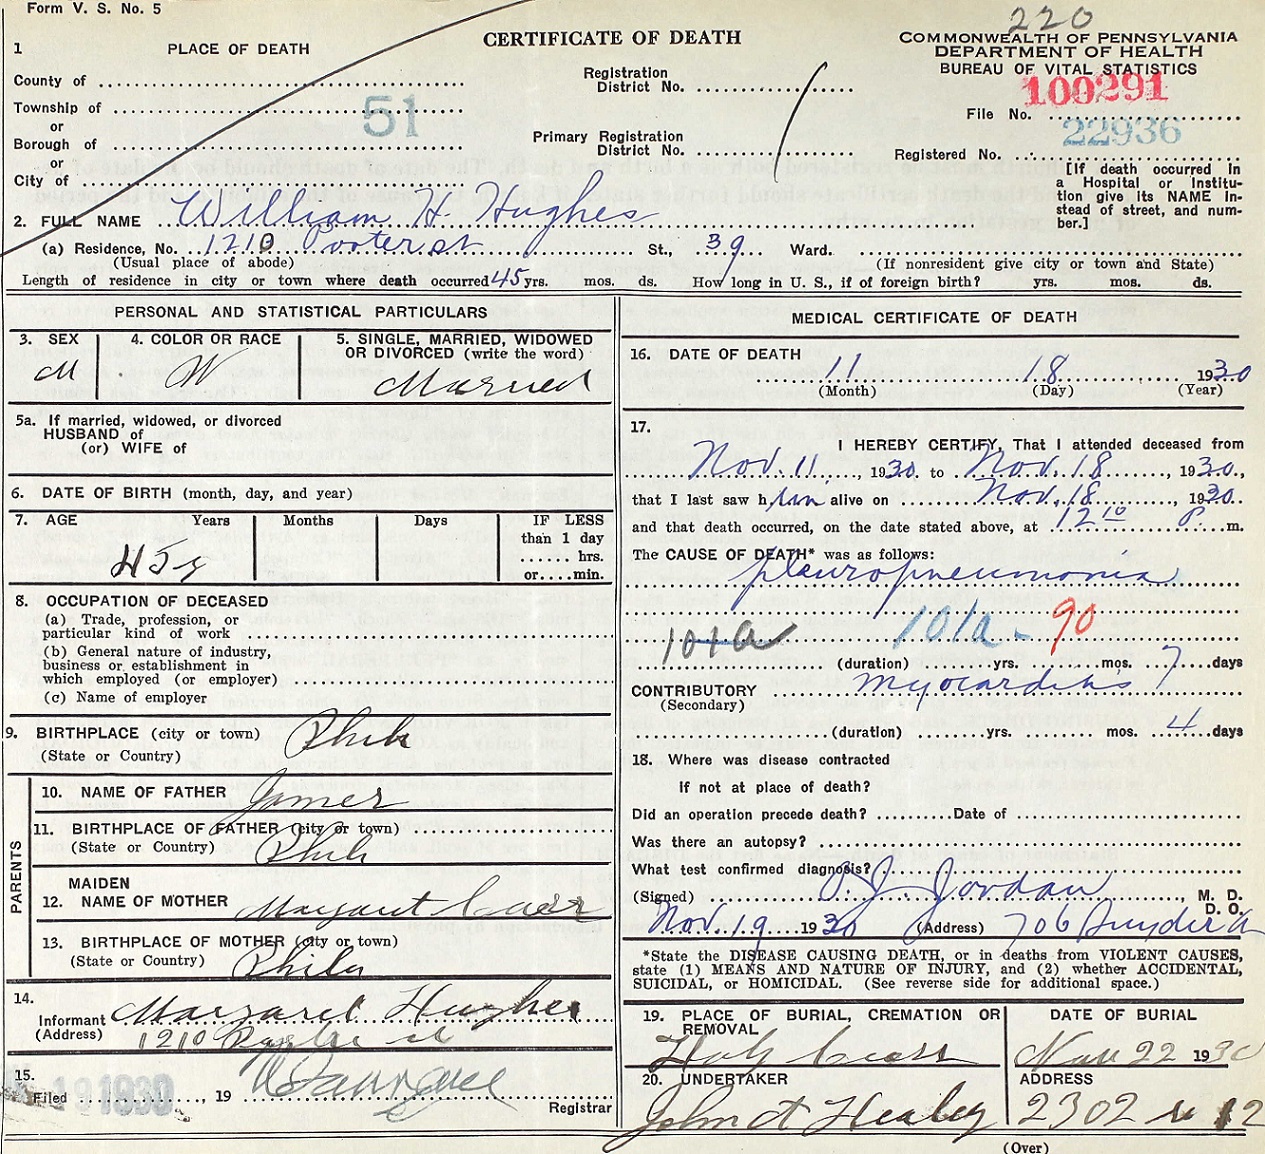 Form V. S. No. 5
220
CERTIFICATE OF DEATH
COMMONWEALTH OF PENNSYLVANIA
DEPARTMENT OF HEALTH
BUREAU OF VITAL STATISTICS
1 PLACE OF DEATH
County of
Township of
or
Borough of
or
City of
51
Registration
District No.
Primary Registration
District No.
100291
File No.
22936
Registered No.
[If death occurred in
a Hospital or Institu-
tion give its NAME in-
stead of street, and num-
ber.]
2. FULL NAME William H. Hughes
(a) Residence, No. 1210 st St., 39 Ward.
(Usual place of abode) (If nonresident give city or town and State)
Length of residence in city or town where death occurred 45 yrs. mos. ds. How long in U. S., if of foreign birth? yrs. mos. ds.
PERSONAL AND STATISTICAL PARTICULARS
3. SEX 4. COLOR OR RACE 5. SINGLE, MARRIED, WIDOWED
OR DIVORCED (write the word)
M. W Married
5a. If married, widowed, or divorced
HUSBAND of
(or) WIFE of
6. DATE OF BIRTH (month, day, and year)
7. AGE Years Months Days IF LESS
than 1 day
.... hrs.
or....min.
45 y
8. OCCUPATION OF DECEASED
(a) Trade, profession, or
particular kind of work
(b) General nature of industry,
business or establishment in
which employed (or employer)
(c) Name of employer
9. BIRTHPLACE (city or town) Phila
(State or Country)
PARENTS
10. NAME OF FATHER James
11. BIRTHPLACE OF FATHER (city or town)
(State or Country) Phila
MAIDEN
12. NAME OF MOTHER Margaret Carr
13. BIRTHPLACE OF MOTHER (city or town)
(State or Country) Phila
14.
Informant Margaret Hughes
(Address) 1210 st
15.
Filed 19 1930, 19
Registrar
MEDICAL CERTIFICATE OF DEATH
16. DATE OF DEATH
11 18 1930
(Month) (Day) (Year)
17.
I HEREBY CERTIFY, That I attended deceased from
Nov. 11, 1930 to Nov. 18, 1930,
that I last saw him alive on Nov. 18, 1930.
and that death occurred, on the date stated above, at 12 10 P. m.
The CAUSE OF DEATH* was as follows:
pleuropneumonia
101a 101a - 90
(duration) yrs. mos. 7 days
CONTRIBUTORY myocarditis
(Secondary)
(duration) yrs. mos. 4 days
18. Where was disease contracted
If not at place of death?
Did an operation precede death? Date of
Was there an autopsy?
What test confirmed diagnosis?
(Signed) P. J. Jordan, M. D.
D. O.
Nov. 19 1930 (Address) 706 Snyder
*State the DISEASE CAUSING DEATH, or in deaths from VIOLENT CAUSES,
state (1) MEANS AND NATURE OF INJURY, and (2) whether ACCIDENTAL,
SUICIDAL, or HOMICIDAL. (See reverse side for additional space.)
19. PLACE OF BURIAL, CREMATION OR
REMOVAL
Holy Cross
DATE OF BURIAL
Nov 22 1930
20. UNDERTAKER
John A Healey
ADDRESS
2302 12
(Over)